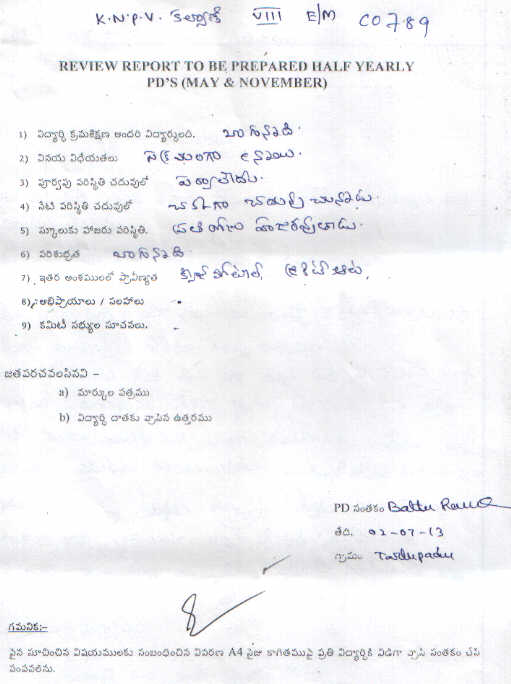 K.N.P.V. కళ్యాణ్ VIII E/M CO789
REVIEW REPORT TO BE PREPARED HALF YEARLY
PD'S (MAY & NOVEMBER)
1) విద్యార్థి క్రమశిక్షణ అందరి విద్యార్థులది. బాగున్నది.
2) వినయ విధేయతలు
3) పూర్వపు పరిస్థితి చదువులో
4) నేటి పరిస్థితి చదువులో
5) స్కూలుకు హాజరు పరిస్థితి.
6) పరిశుభ్రత బాగున్నది
7) ఇతర అంశములలో ప్రావీణ్యత
8) అభిప్రాయాలు / సలహాలు
9) కమిటీ సభ్యుల సూచనలు.
జతపరచవలసినవి –
a) మార్కుల పత్రము
b) విద్యార్థి దాతకు వ్రాసిన ఉత్తరము
PD సంతకం
తేది. 02-07-13
గ్రామం Tadepadu
గమనిక:-
పైన సూచించిన విషయములకు సంబంధించిన వివరణ A4 సైజు కాగితముపై ప్రతి విద్యార్థికి విడిగా వ్రాసి సంతకం చేసి
పంపవలెను.